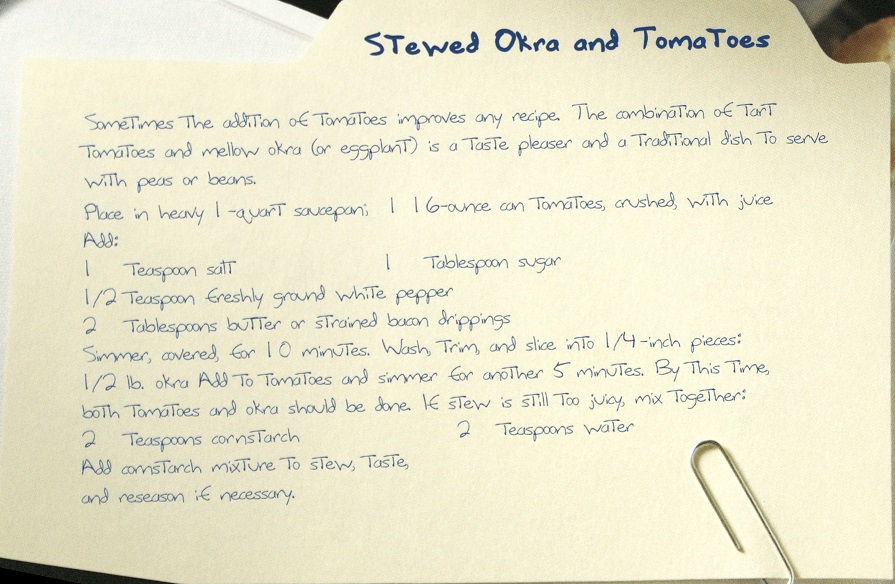 Stewed Okra and Tomatoes
Sometimes the addition of tomatoes improves any recipe. The combination of tart
tomatoes and mellow okra (or eggplant) is a taste pleaser and a traditional dish to serve
with peas or beans.
Place in heavy 1-quart saucepan; 1 16-ounce can tomatoes, crushed, with juice
Add:
1 teaspoon salt 1 tablespoon sugar
1/2 teaspoon freshly ground white pepper
2 tablespoons butter or strained bacon drippings
Simmer, covered, for 10 minutes. Wash, trim, and slice into 1/4-inch pieces:
1/2 lb. okra Add to tomatoes and simmer for another 5 minutes. By this time,
both tomatoes and okra should be done. If stew is still too juicy, mix together:
2 teaspoons cornstarch 2 teaspoons water
Add cornstarch mixture to stew, taste,
and reseason if necessary.